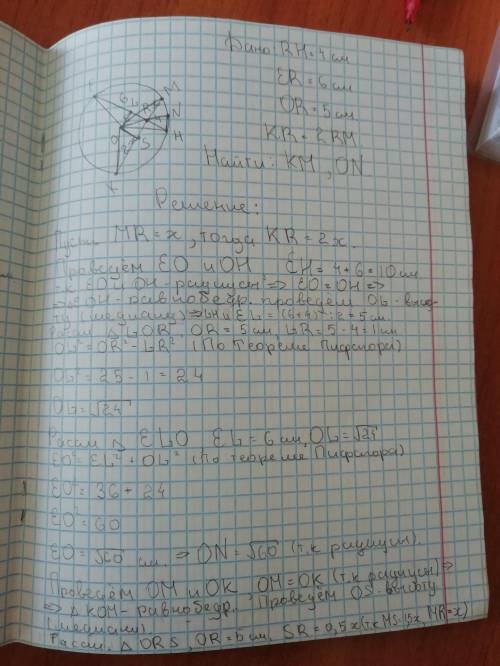 Дано: RH = 4 см
ER = 6 см
OR = 5 см
KR = 2RM
Найти: KM, ON
Решение:
M
N
H
L
R
O
S
K
Пусть MR = x, тогда KR = 2x.
Проведём EO и OH EH = 4+6=10 см
т.к EO и OH - радиусы => EO = OH =>
=> EOH - равнобедр. проведём OL - высо-
ту (медиану) => LH и EL = (6+4):2 = 5 см
Рассм △ LOR OR = 5 см, LR = 5-4=1 см
OL² = OR² - LR² (По Теореме Пифагора)
OL² = 25 - 1 = 24
OL = √24
Рассм △ ELO EL = 6 см, OL = √24
EO² = EL² + OL² (По теореме Пифагора)
EO² = 36 + 24
EO² = 60
EO = √60 см. => ON = √60 (т.к радиусы).
Проведём OM и OK, OM = OK (т.к радиусы) =>
=> △ KOM - равнобедр. Проведём OS - высоту
(медиану)
Рассм. △ ORS, OR = 5 см, SR = 0,5x (т.к MS = 1,5x, MR = x)